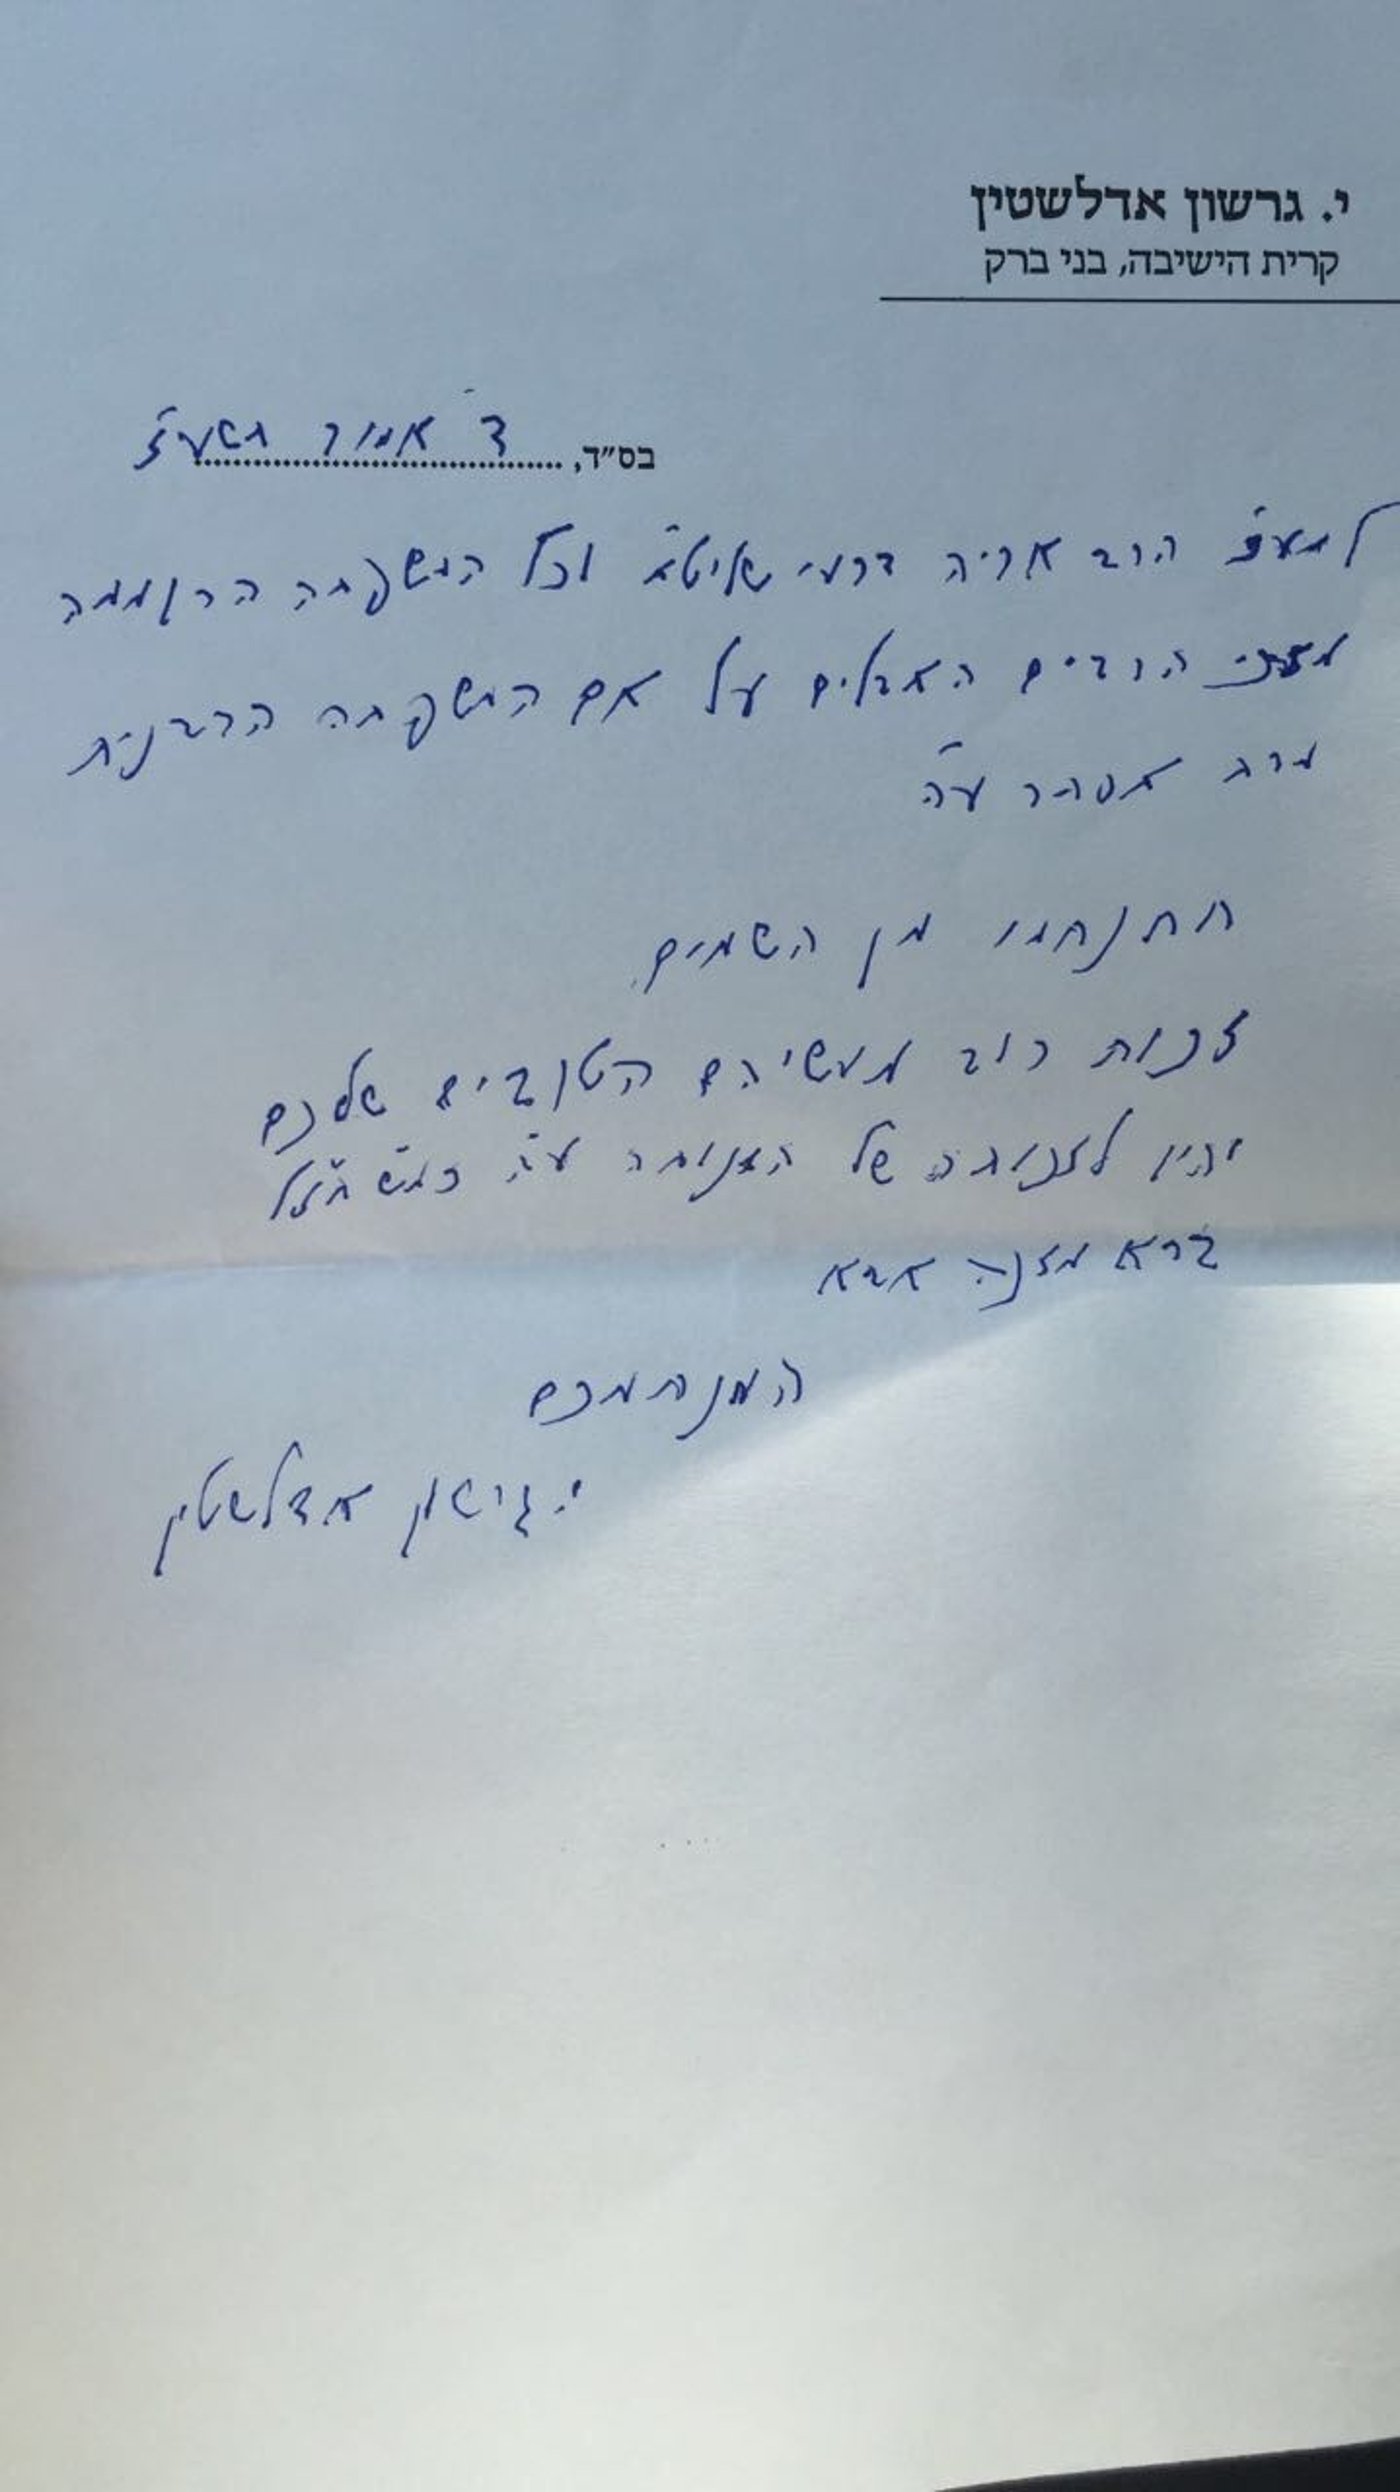 י. גרשון אדלשטין
קרית הישיבה, בני ברק
בס״ד, ד' אמור תשע״ז
למע״כ הרב אריה דרעי שליט״א וכל המשפחה הרוממה
מזכי הרבים האבלים על אם המשפחה הרבנית
מרת אסתר ע״ה
תתנחמו מן השמים
זכות רוב מעשיהם הטובים שלכם
יהיו לזכותה של המנוחה ע״ה כמ״ש חז״ל
ברא מזכה אבא
המנחמכם
י. גרשון אדלשטין